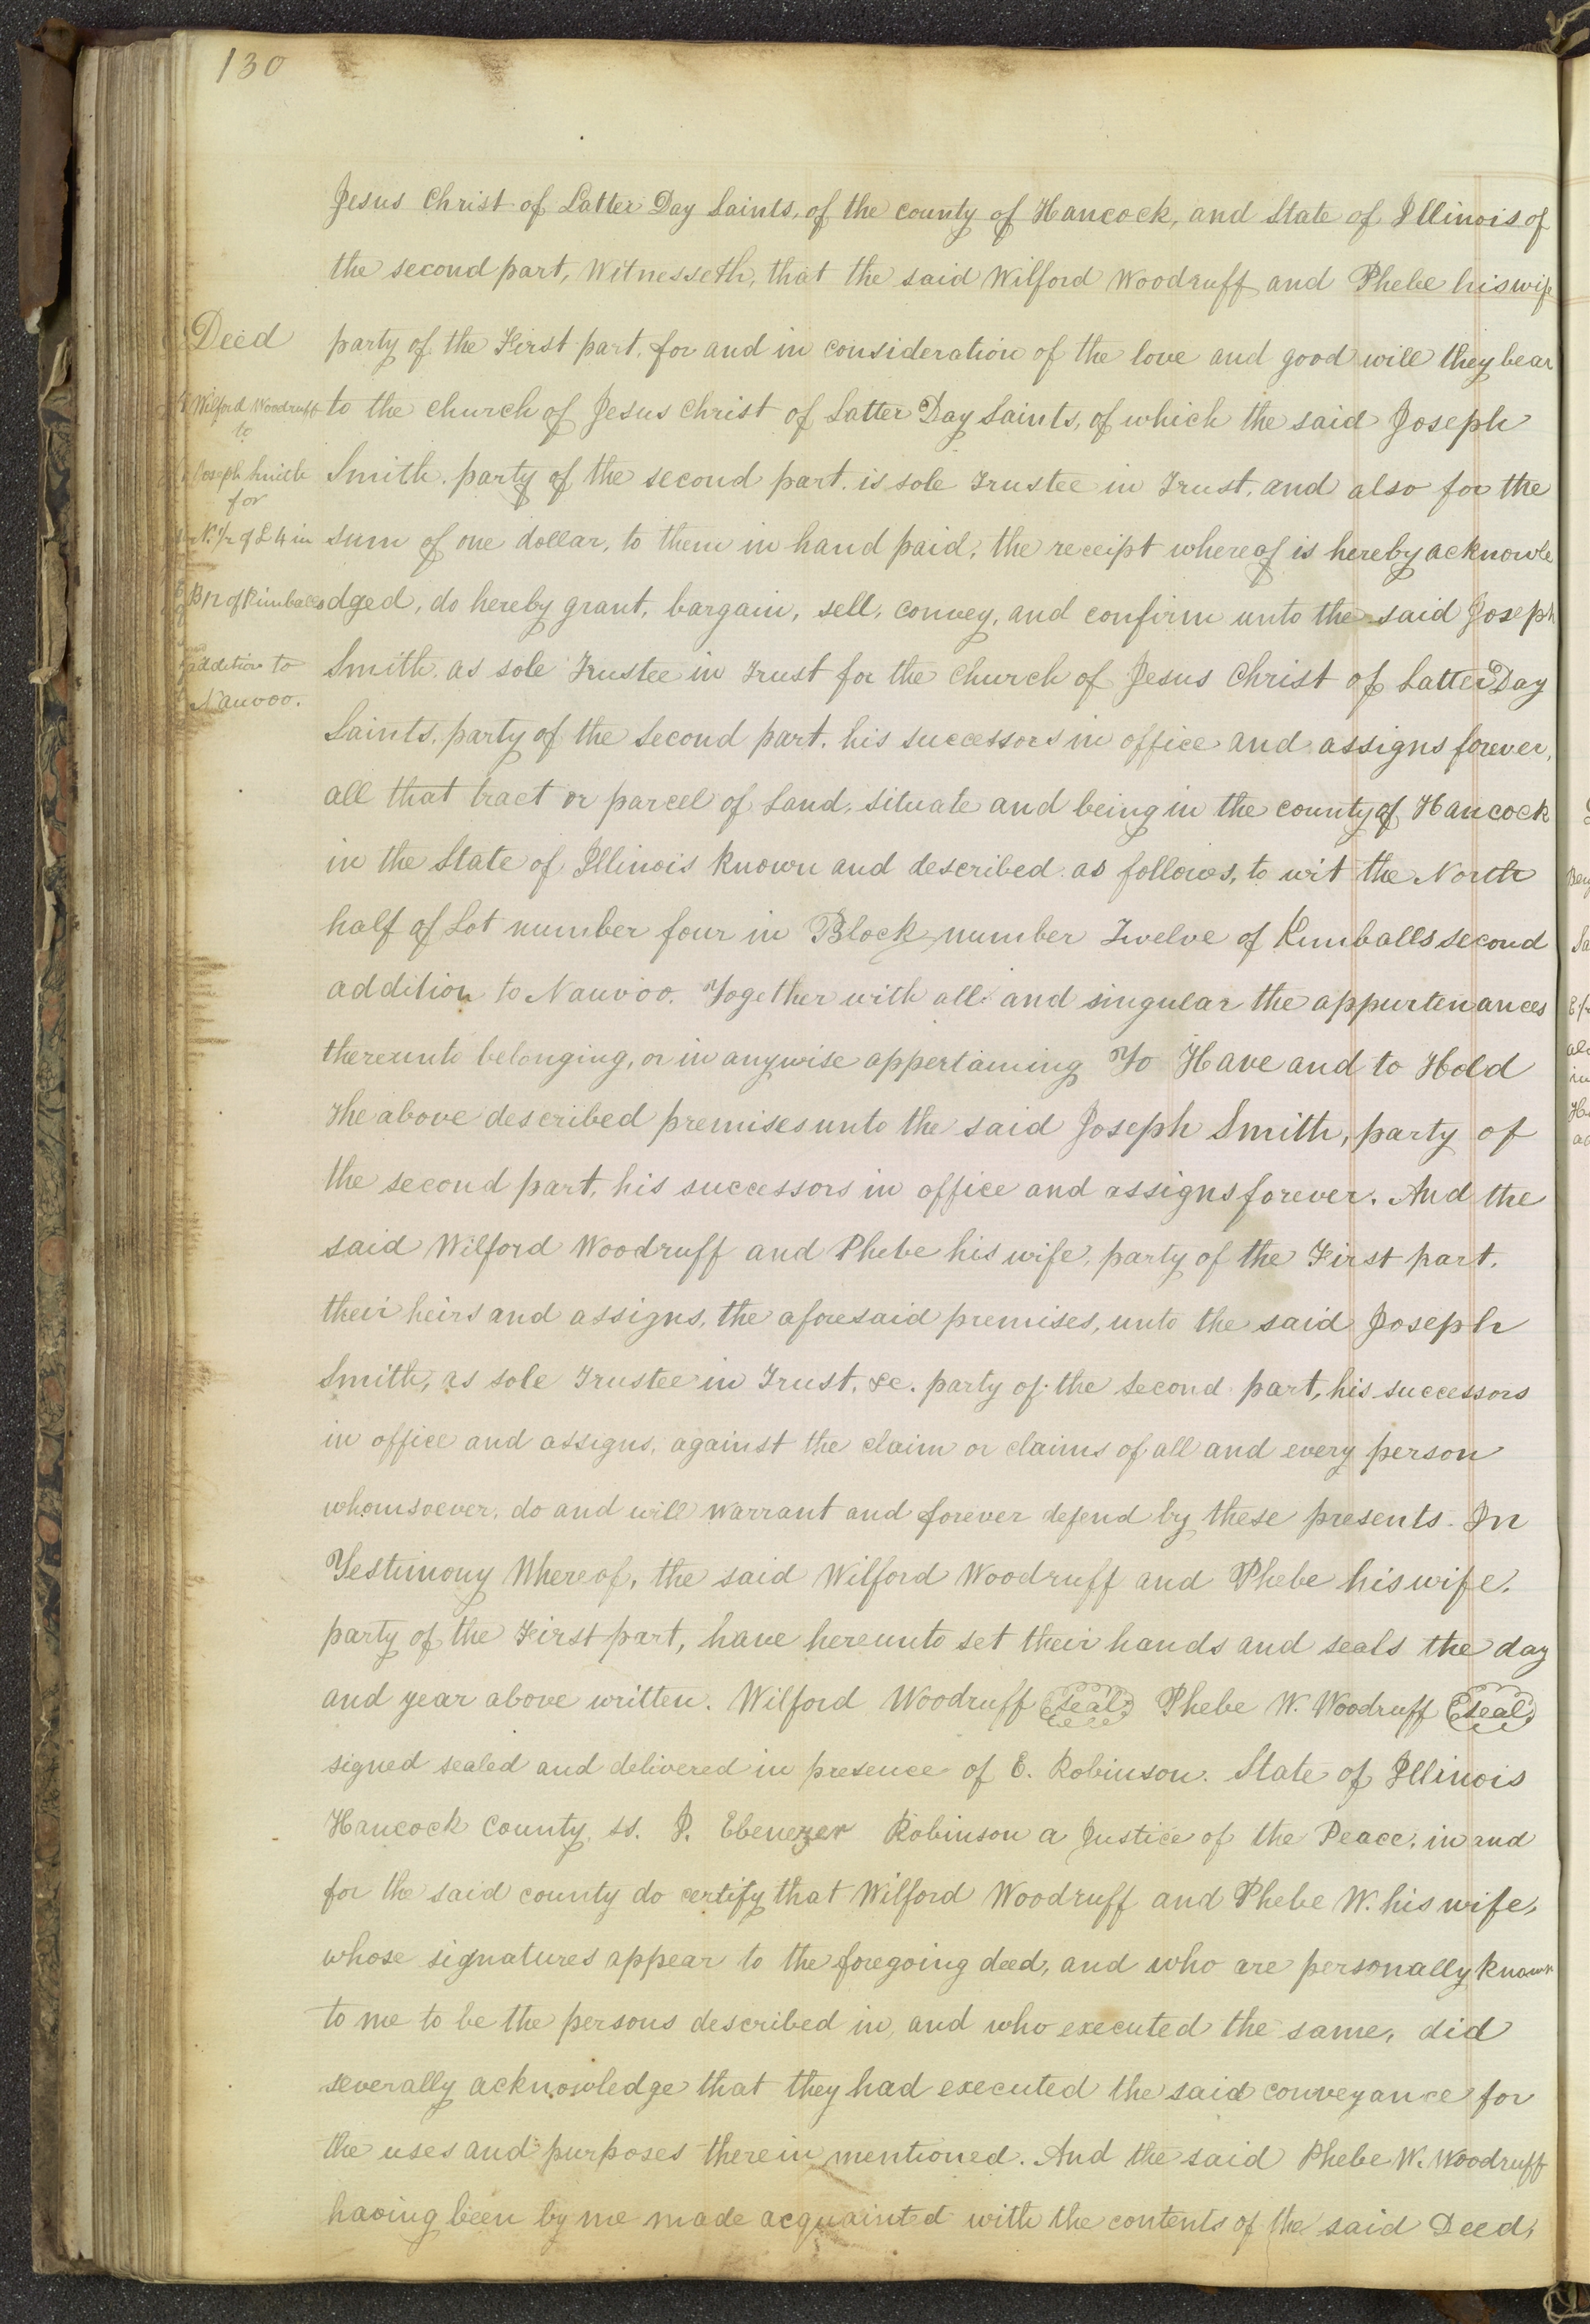 130
Jesus Christ of Latter Day Saints, of the county of Hancock, and State of Illinois of
the second part, Witnesseth, that the said Wilford Woodruff and Phebe his wife
Deed
party of the First part, for and in consideration of the love and good will they bear
Wilford Woodruff
to
to the church of Jesus Christ of Latter Day Saints, of which the said Joseph
Joseph Smith
for
Smith, party of the second part, is sole Trustee in Trust, and also for the
N. 1/2 of L 4 in
sum of one dollar, to them in hand paid, the receipt whereof is hereby acknowle
B 12 of Kimballs
dged, do hereby grant, bargain, sell, convey, and confirm unto the said Joseph
addition to
Nauvoo.
Smith, as sole Trustee in Trust for the Church of Jesus Christ of Latter Day
Saints, party of the Second part, his successors in office and assigns forever,
all that tract or parcel of Land, situate and being in the county of Hancock
in the State of Illinois known and described as follows, to wit the North
half of Lot number four in Block number Twelve of Kimballs second
addition to Nauvoo. Together with all and singular the appurtenances
thereunto belonging, or in anywise appertaining To Have and to Hold
The above described premises unto the said Joseph Smith, party of
the second part, his successors in office and assigns forever. And the
said Wilford Woodruff and Phebe his wife, party of the First part,
their heirs and assigns, the aforesaid premises, unto the said Joseph
Smith, as sole Trustee in Trust, &c. party of the Second part, his successors
in office and assigns, against the claim or claims of all and every person
whomsoever, do and will warrant and forever defend by these presents. In
Testimony Whereof, the said Wilford Woodruff and Phebe his wife,
party of the First part, have hereunto set their hands and seals the day
and year above written. Wilford Woodruff seal Phebe W. Woodruff seal
signed sealed and delivered in presence of E. Robinson. State of Illinois
Hancock County, ss. I, Ebenezer Robinson a Justice of the Peace, in and
for the said county do certify that Wilford Woodruff and Phebe W. his wife,
whose signatures appear to the foregoing deed, and who are personally known
to me to be the persons described in, and who executed the same, did
severally acknowledge that they had executed the said conveyance for
the uses and purposes therein mentioned. And the said Phebe W. Woodruff
having been by me made acquainted with the contents of the said Deed,